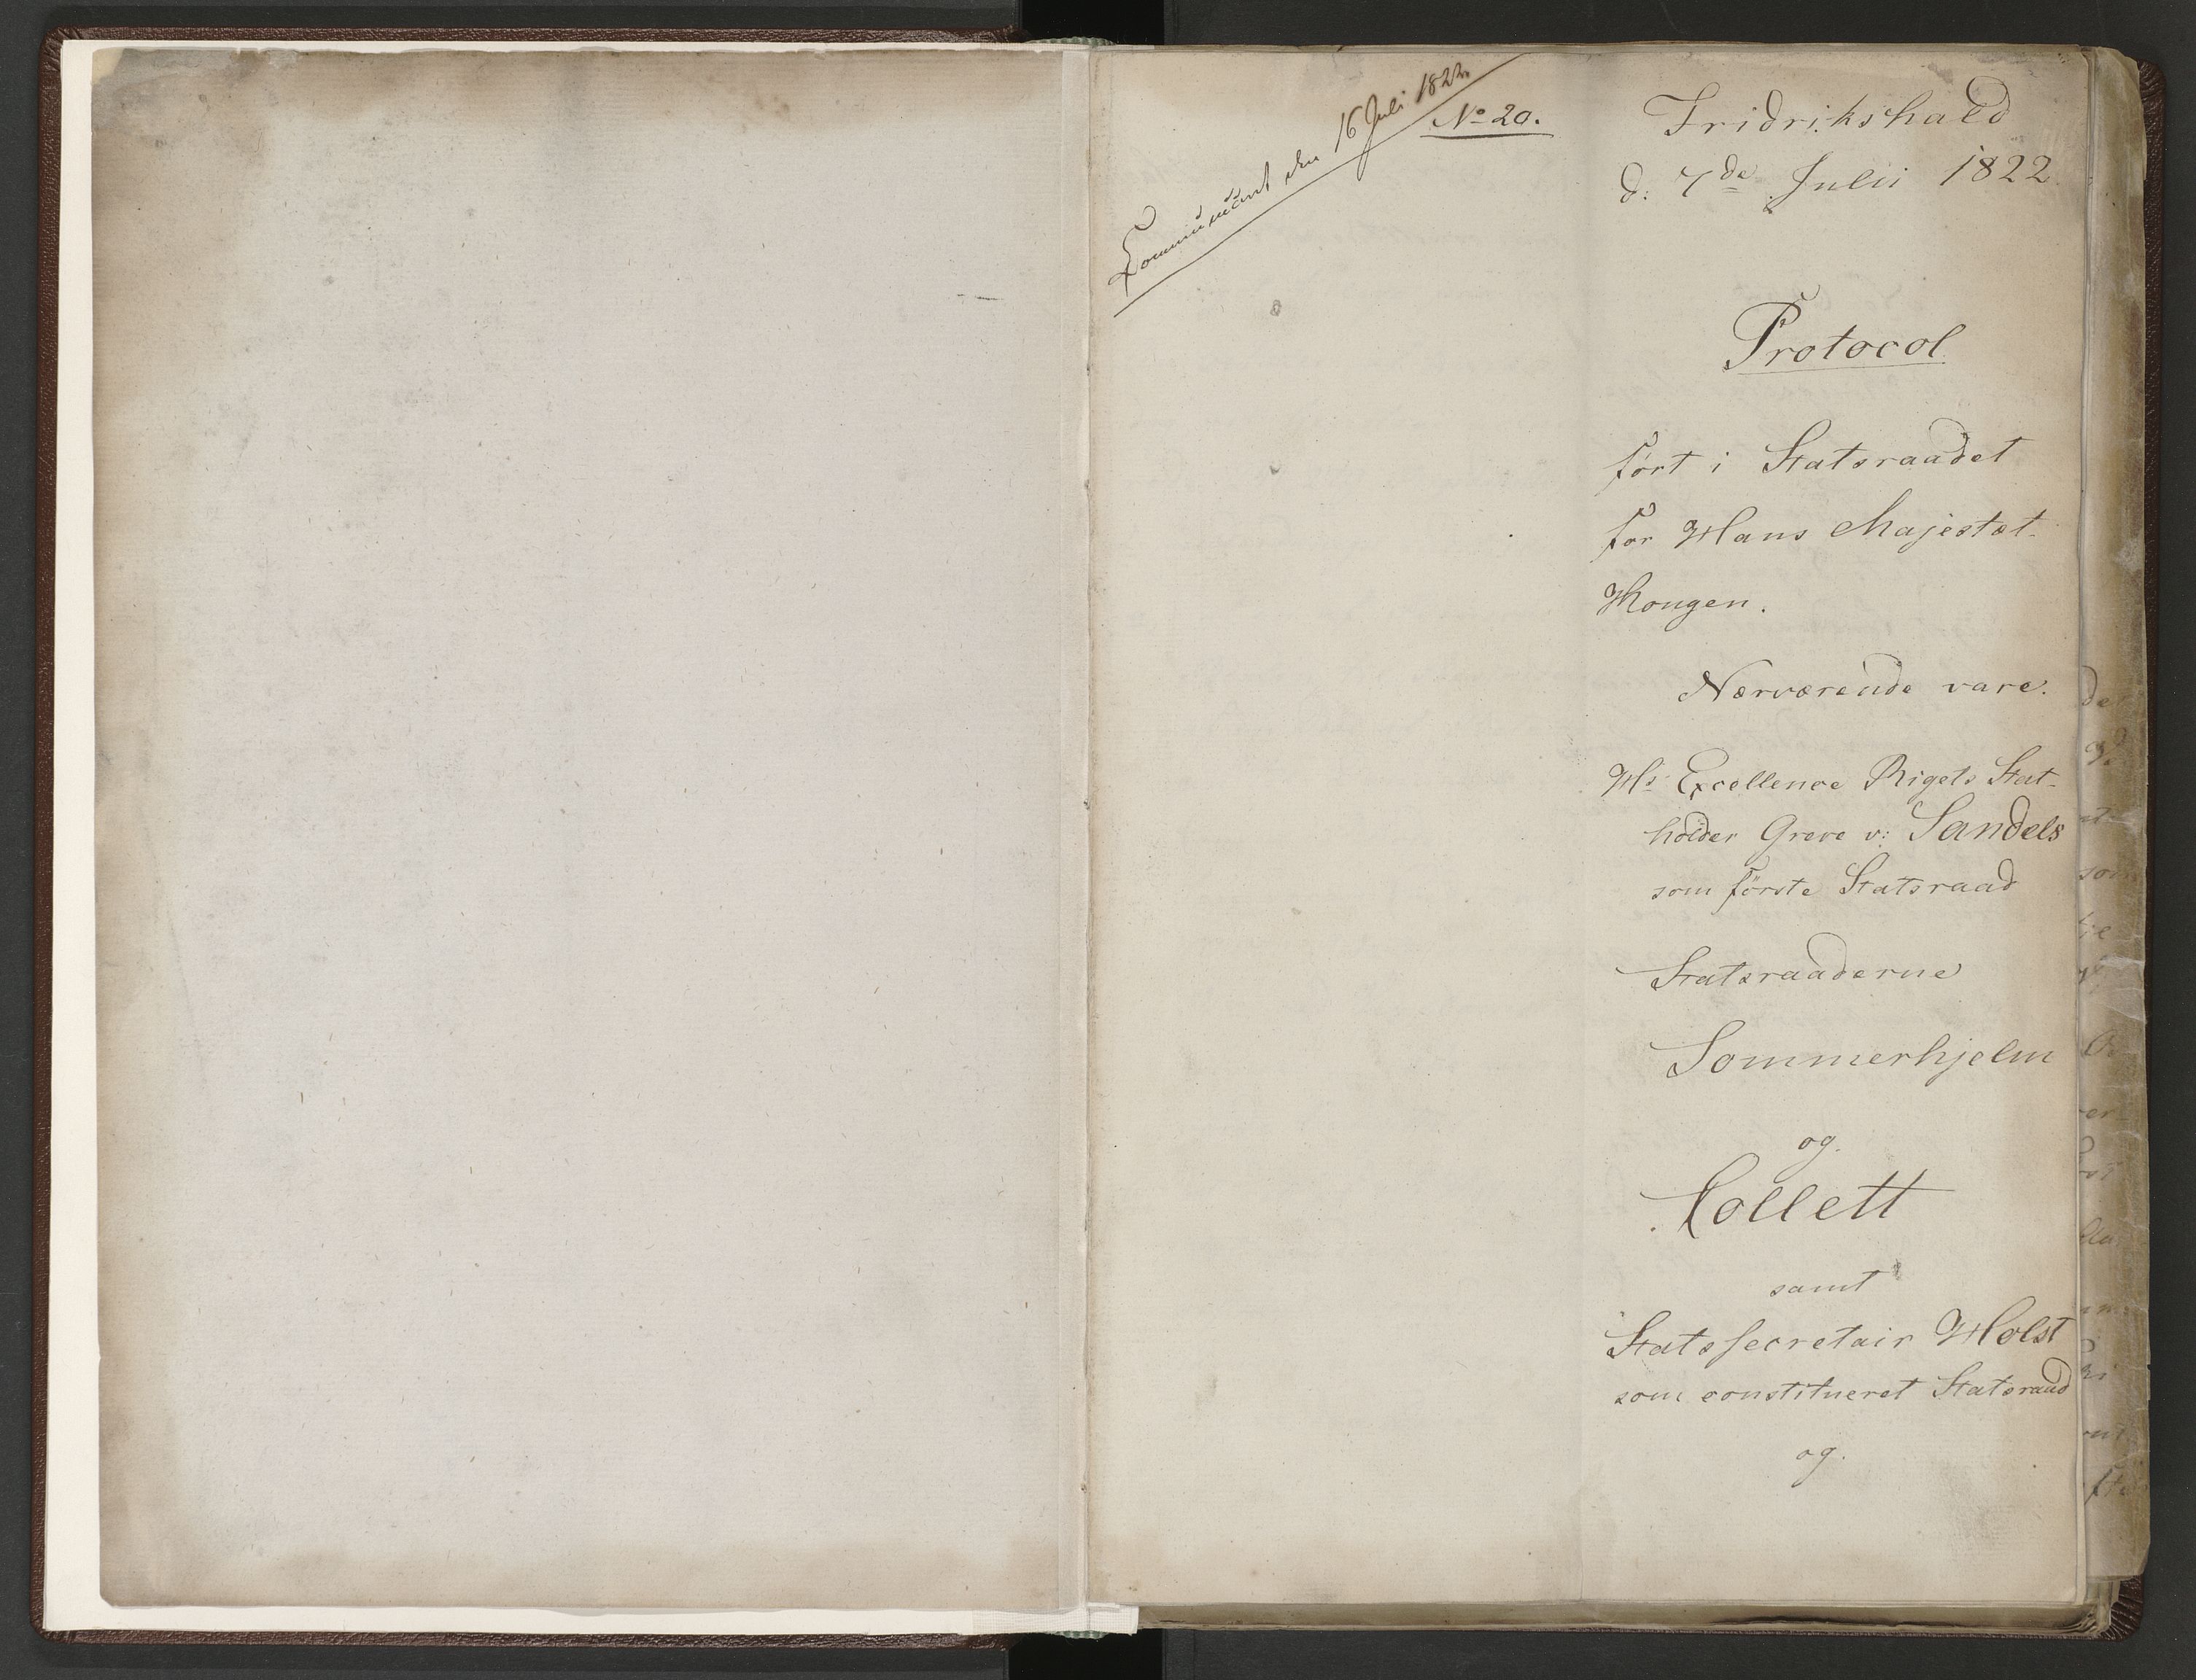 Communicirt den 16 Juli 1822.
No 20.
Fridrikshald
d: 7de Julii 1822
Protocol
ført i Statsraadet
for Hans Majestæt
Kongen.
Nærværende vare.
Hs Excellence Rigets Stat-
holder Greve v: Sandels
som første Statsraad
Statsraaderne
Sommerhjelm
og
Collett
samt
Statssecretair Holst
som constitueret Statsraad
og